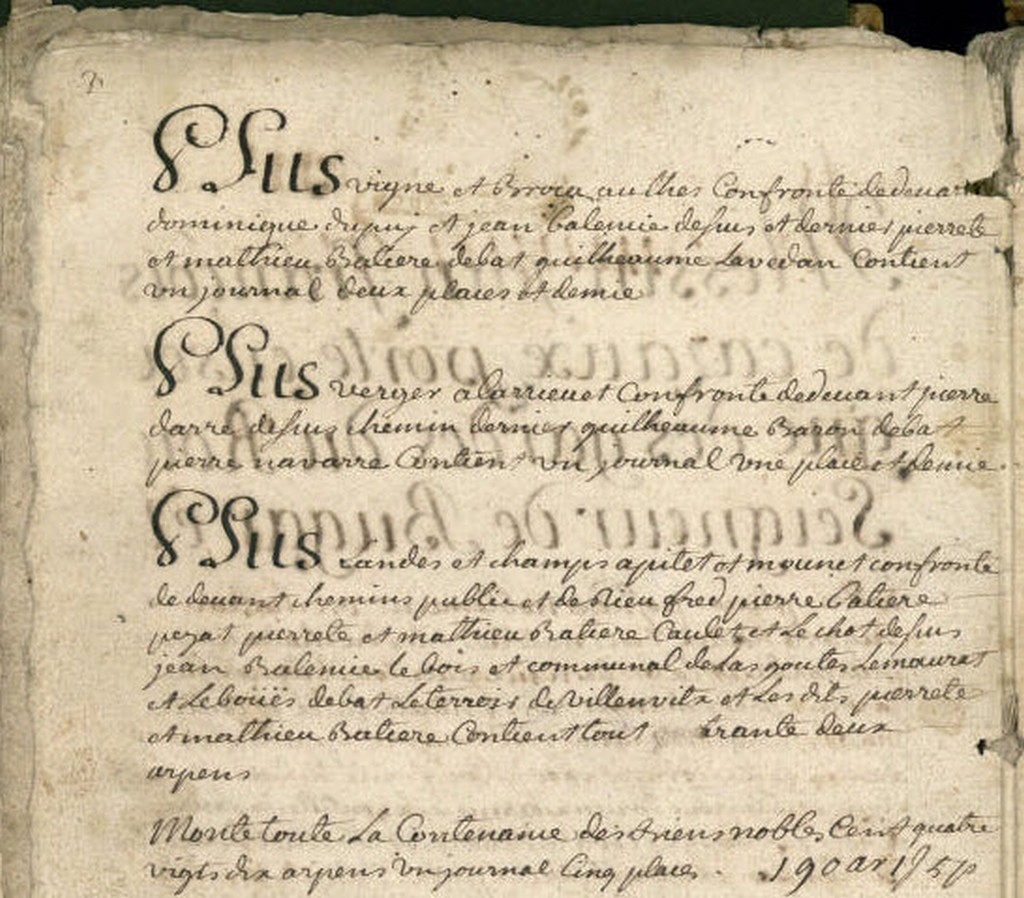 PLus vigne et Broca aulhes Confronte dedeuant
dominique dupuy et jean Balemie desus et dernier pierrete
et mathieu Batiere debat guilheaume Lavedan Contient
vn journal deux places et demie
PLus verger alarrieuet Confronte dedeuant pierre
darré desus chemin dernier guilheaume Baron debat
pierre navarre Contient vn journal vne place et demie
PLus Landes et champs apitet et mounet confronte
de deuant chemins publics et de Rieu fred pierre Batiere
pezat pierrete et mathieu Batiere Caulet et Le chot desus
jean Balemie le bois et communal de Las goutes Lemauras
et Leboües debat Leterroir de Villenvits et Les dits pierrete
et mathieu Batiere Contient tout trante deux
arpens
Monte toute La Contenance des biens nobles Cent quatre
vigts dix arpens vn journal Cinq places. 190 ar 1 J 5 p